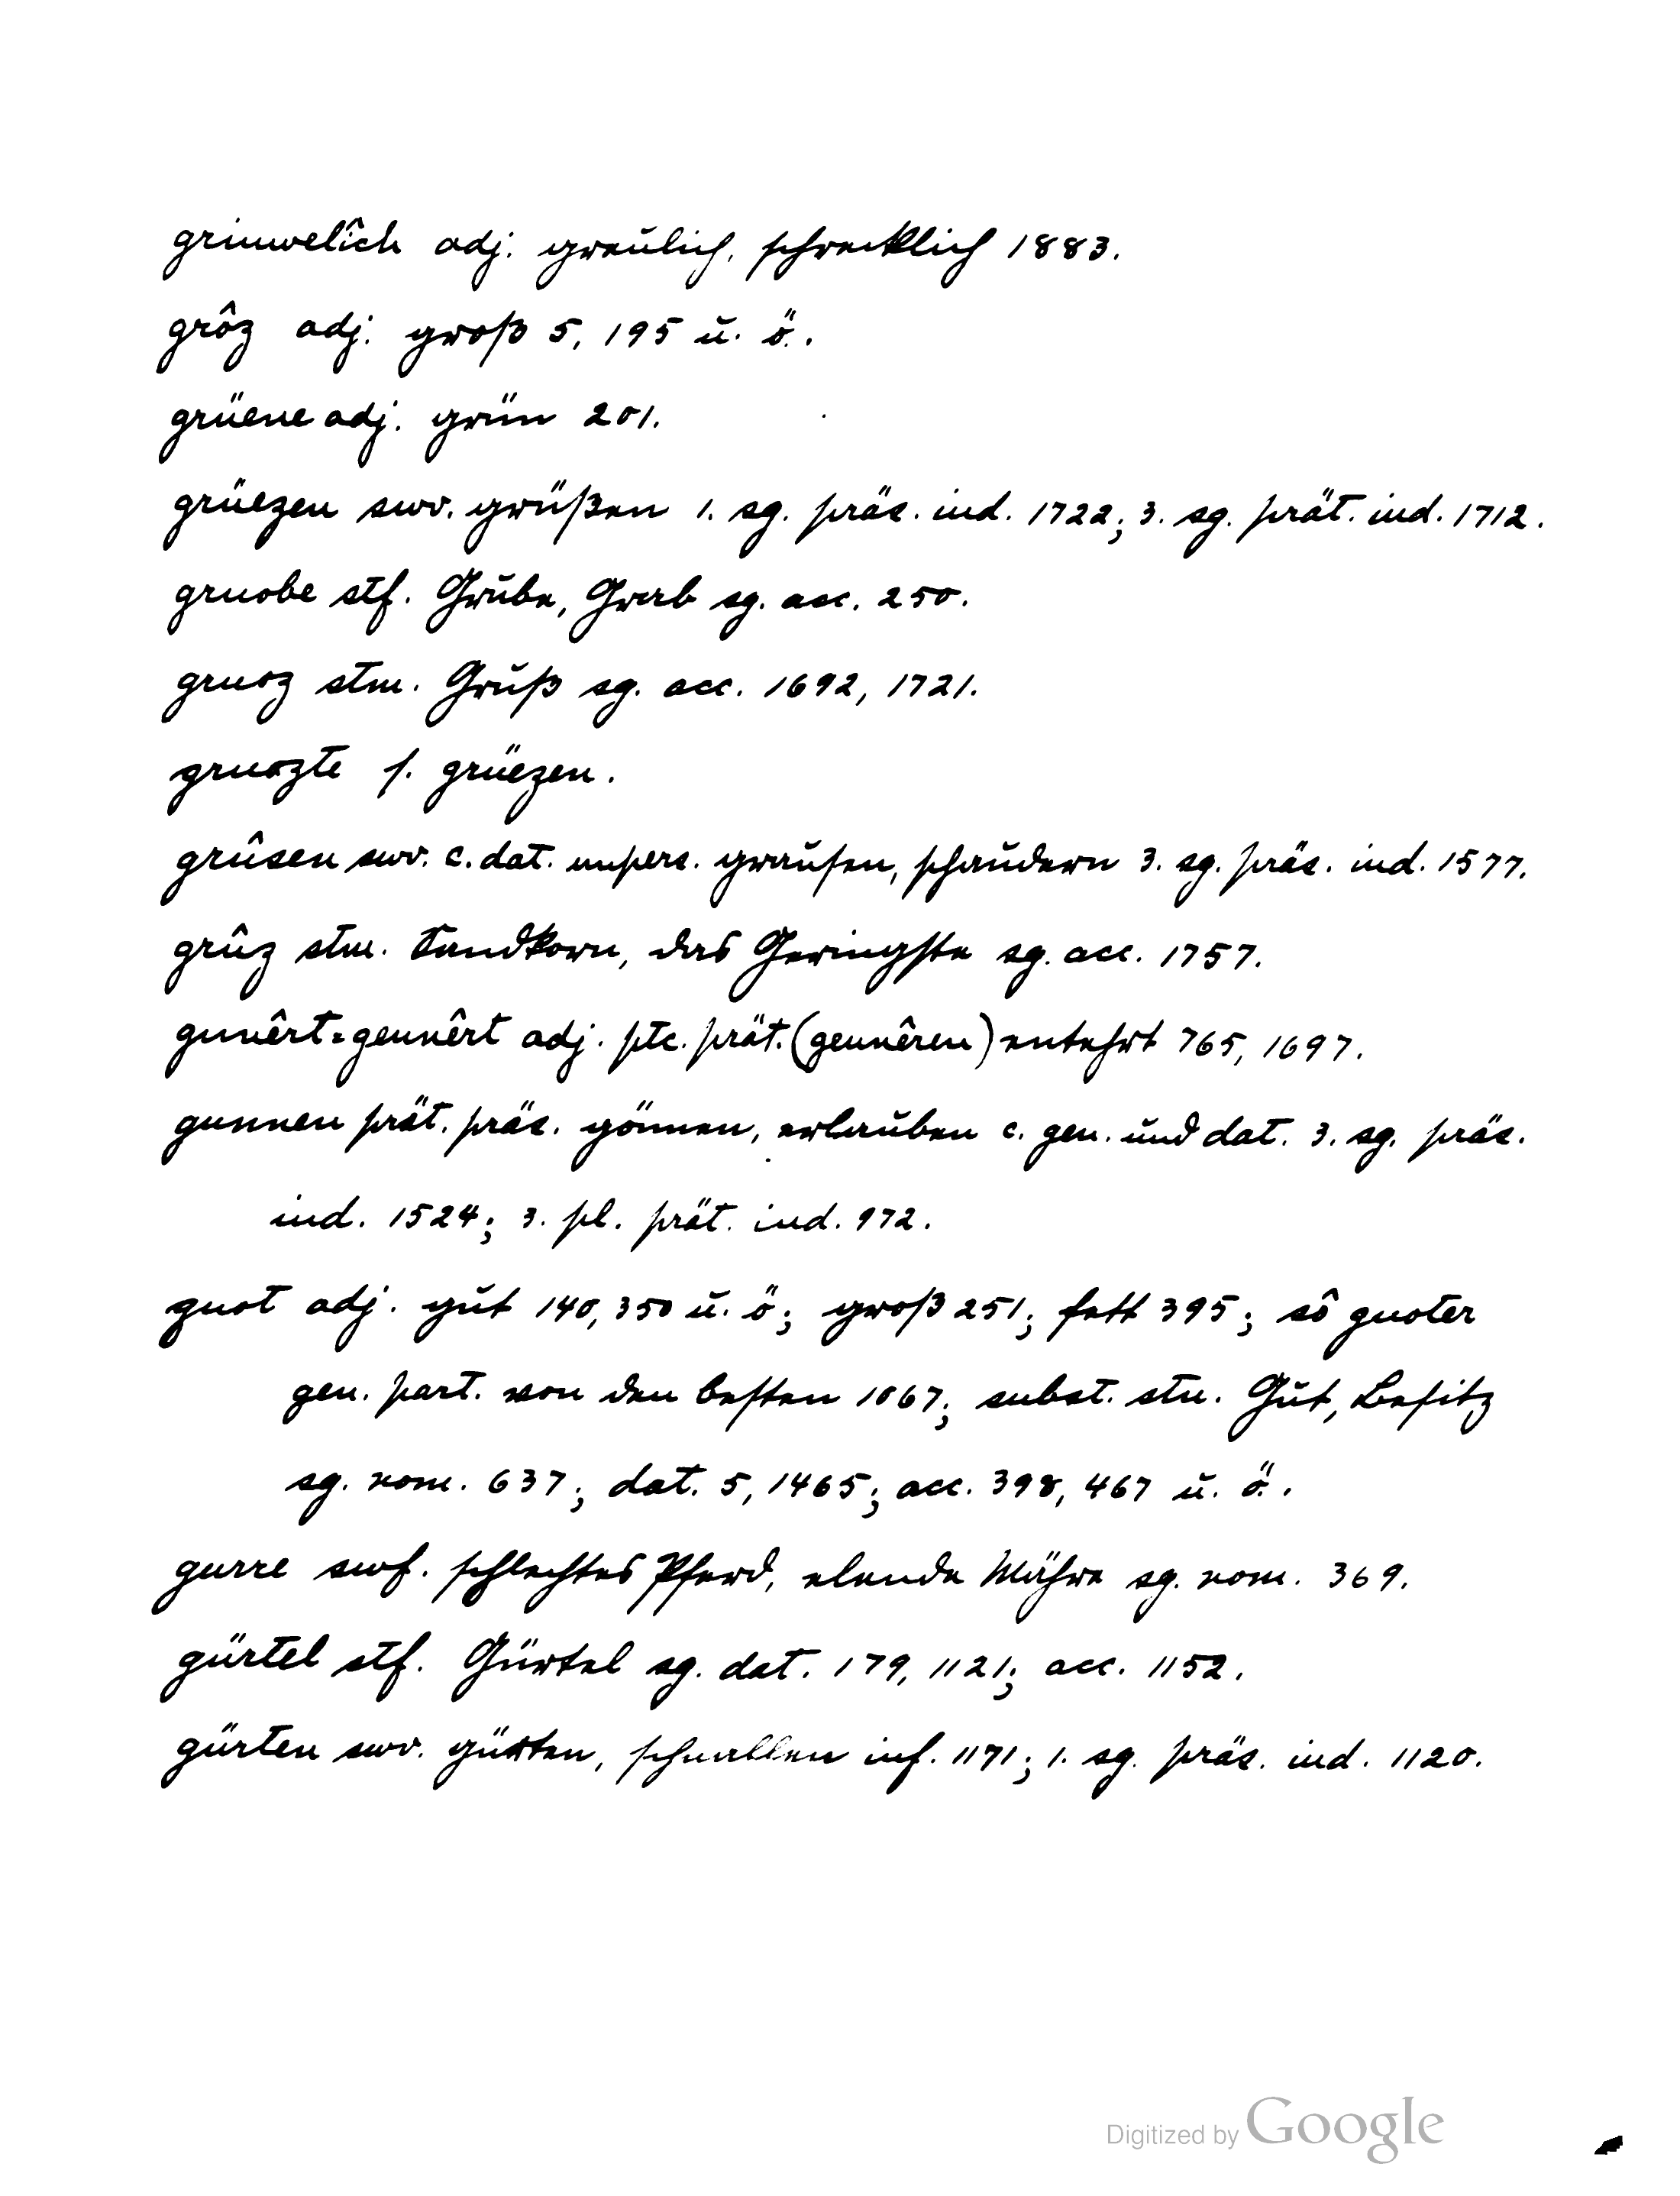 griuwelîch adj. greulich, schrecklich 1883.
grôz adj. groß 5, 195 u. ö..
grüene adj. grün 201.
grüezen swv. grüßen 1. sg. präs. ind. 1722; 3. sg. prät. ind. 1712.
gruobe stf. Grube, Grab sg. acc. 250.
gruoz stm. Gruß sg. acc. 1692, 1721.
gruozte s. grüezen.
grûsen swv. c. dat. unpers. grausen, schaudern 3. sg. präs. ind. 1577.
grûz stm. Sandkorn, das Geringste sg. acc. 1757.
gunêrt=geunêrt adj. ptc. prät. (geunêren) entehrt 765, 1697.
gunnen prät. präs. gönnen, erlauben c. gen. und dat. 3. sg. präs.
ind. 1524; 3. pl. prät. ind. 972.
guot adj. gut 140, 350 u. ö; groß 251; fett 395; sô guoter
gen. part. von den besten 1067; subst. stn. Gut, Besitz
sg. nom. 637; dat. 5, 1465; acc. 398, 467 u. ö..
gurre swf. schlechtes Pferd, elende Mähre sg. nom. 369.
gürtel stf. Gürtel sg. dat. 179, 1121; acc. 1152.
gürten swv. gürten, schnallen inf. 1171; 1. sg. präs. ind. 1120.
Digitized by Google